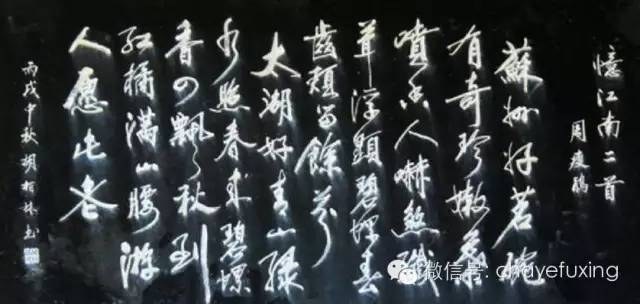 憶江南二首
周瘦鵑
蘇州好茗碗
有奇珍嫩葉
噴香人嚇煞纖
茸浮顯碧螺春
齒頰留餘芬
太湖好青山綠
水照春來碧螺
香四飄飄秋到
紅橘滿山腰游
人愿此老
丙戌中秋胡書
微信号: chayefuxing